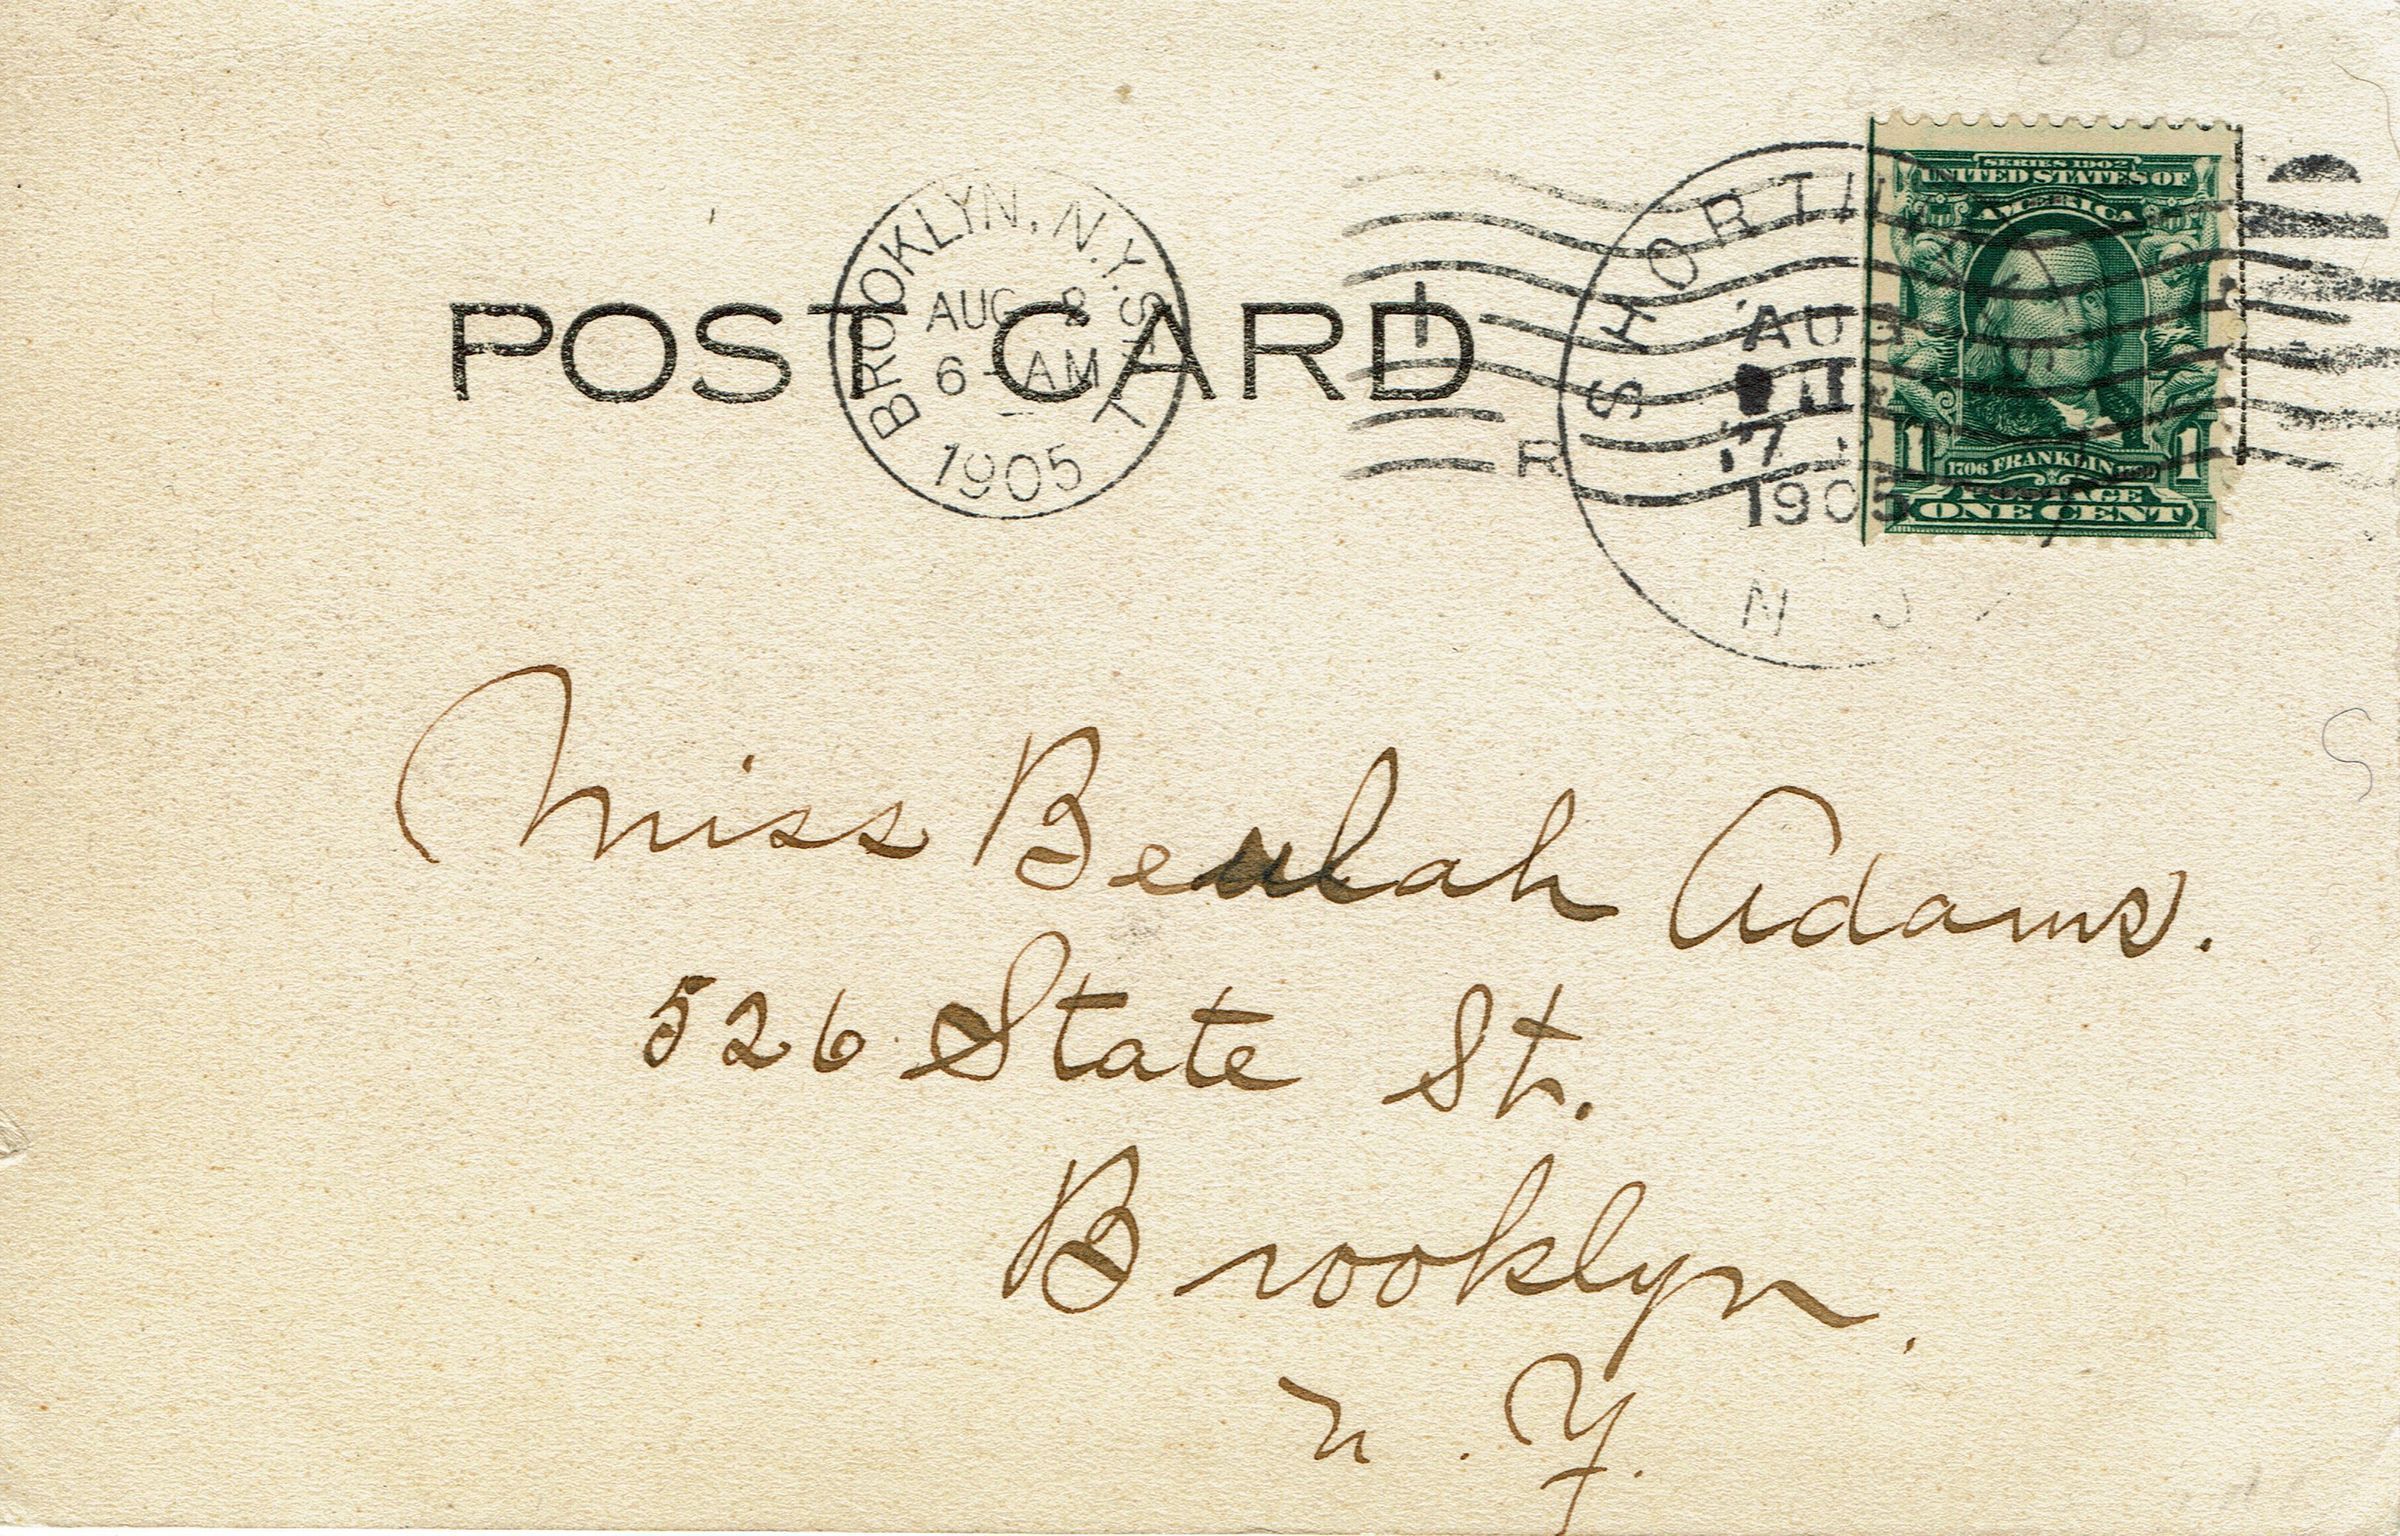 POST CARD
BROOKLYN, N.Y.
AUG 8
6 - AM
1905
SHORT HILLS
AUG
7
1905
N J
R
SERIES 1902
UNITED STATES OF
AMERICA
1706 FRANKLIN 1790
1 1
POSTAGE
ONE CENT
Miss Beulah Adams.
526 State St.
Brooklyn.
N. Y.